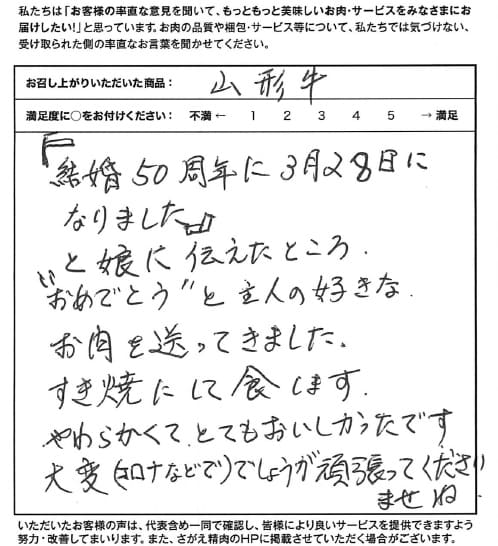 私たちは「お客様の率直な意見を聞いて、もっともっと美味しいお肉・サービスをみなさまにお
届けしたい!」と思っています。お肉の品質や梱包・サービス等について、私たちでは気づけない、
受け取られた側の率直なお言葉を聞かせてください。
お召し上がりいただいた商品: 山形牛
満足度に○をお付けください: 不満 ← 1 2 3 4 5 → 満足
『結婚50周年に3月28日に
なりました』
と娘に伝えたところ.
"おめでとう"と主人の好きな
お肉を送ってきました.
すき焼にして食します.
やわらかくて、とてもおいしかったです
大変(コロナなどで)でしょうが頑張ってくださり
ませね
いただいたお客様の声は、代表含め一同で確認し、皆様により良いサービスを提供できますよう
努力・改善してまいります。また、さがえ精肉のHPに掲載させていただく場合がございます。